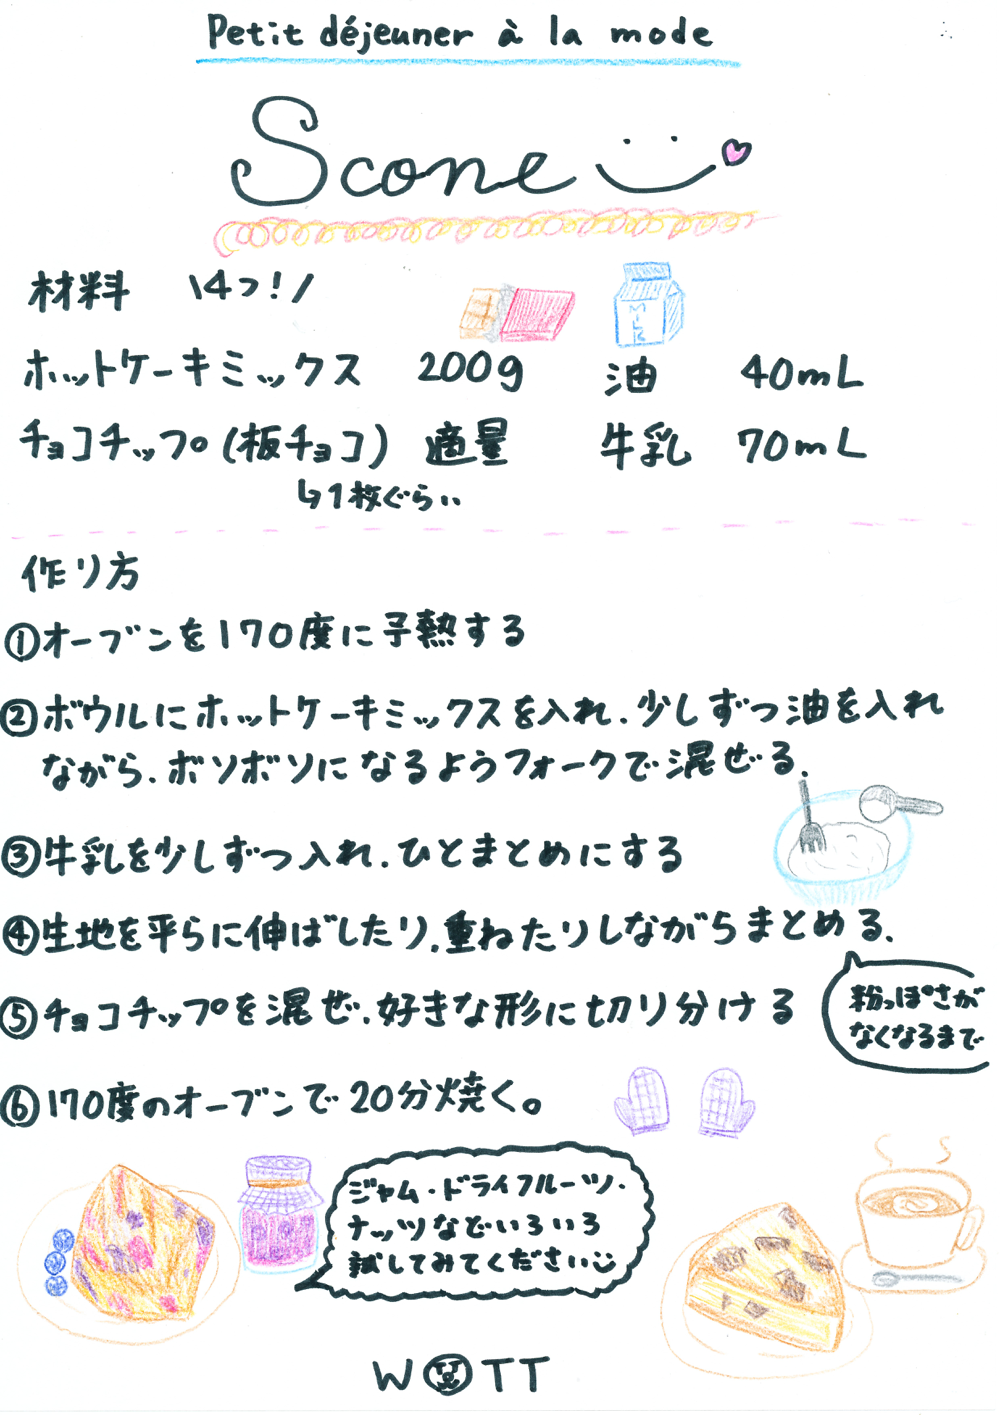 Petit déjeuner à la mode
Scone
材料 \4つ!/
MILK
ホットケーキミックス 200g 油 40mL
チョコチップ(板チョコ) 適量 牛乳 70mL
↳1枚ぐらい
作り方
①オーブンを170度に予熱する
②ボウルにホットケーキミックスを入れ、少しずつ油を入れ
ながら、ボソボソになるようフォークで混ぜる、
③牛乳を少しずつ入れ、ひとまとめにする
④生地を平らに伸ばしたり、重ねたりしながらまとめる、
粉っぽさが
なくなるまで
⑤チョコチップを混ぜ、好きな形に切り分ける
⑥170度のオーブンで20分焼く。
ジャム・ドライフルーツ・
ナッツなどいろいろ
試してみてください
WOTT